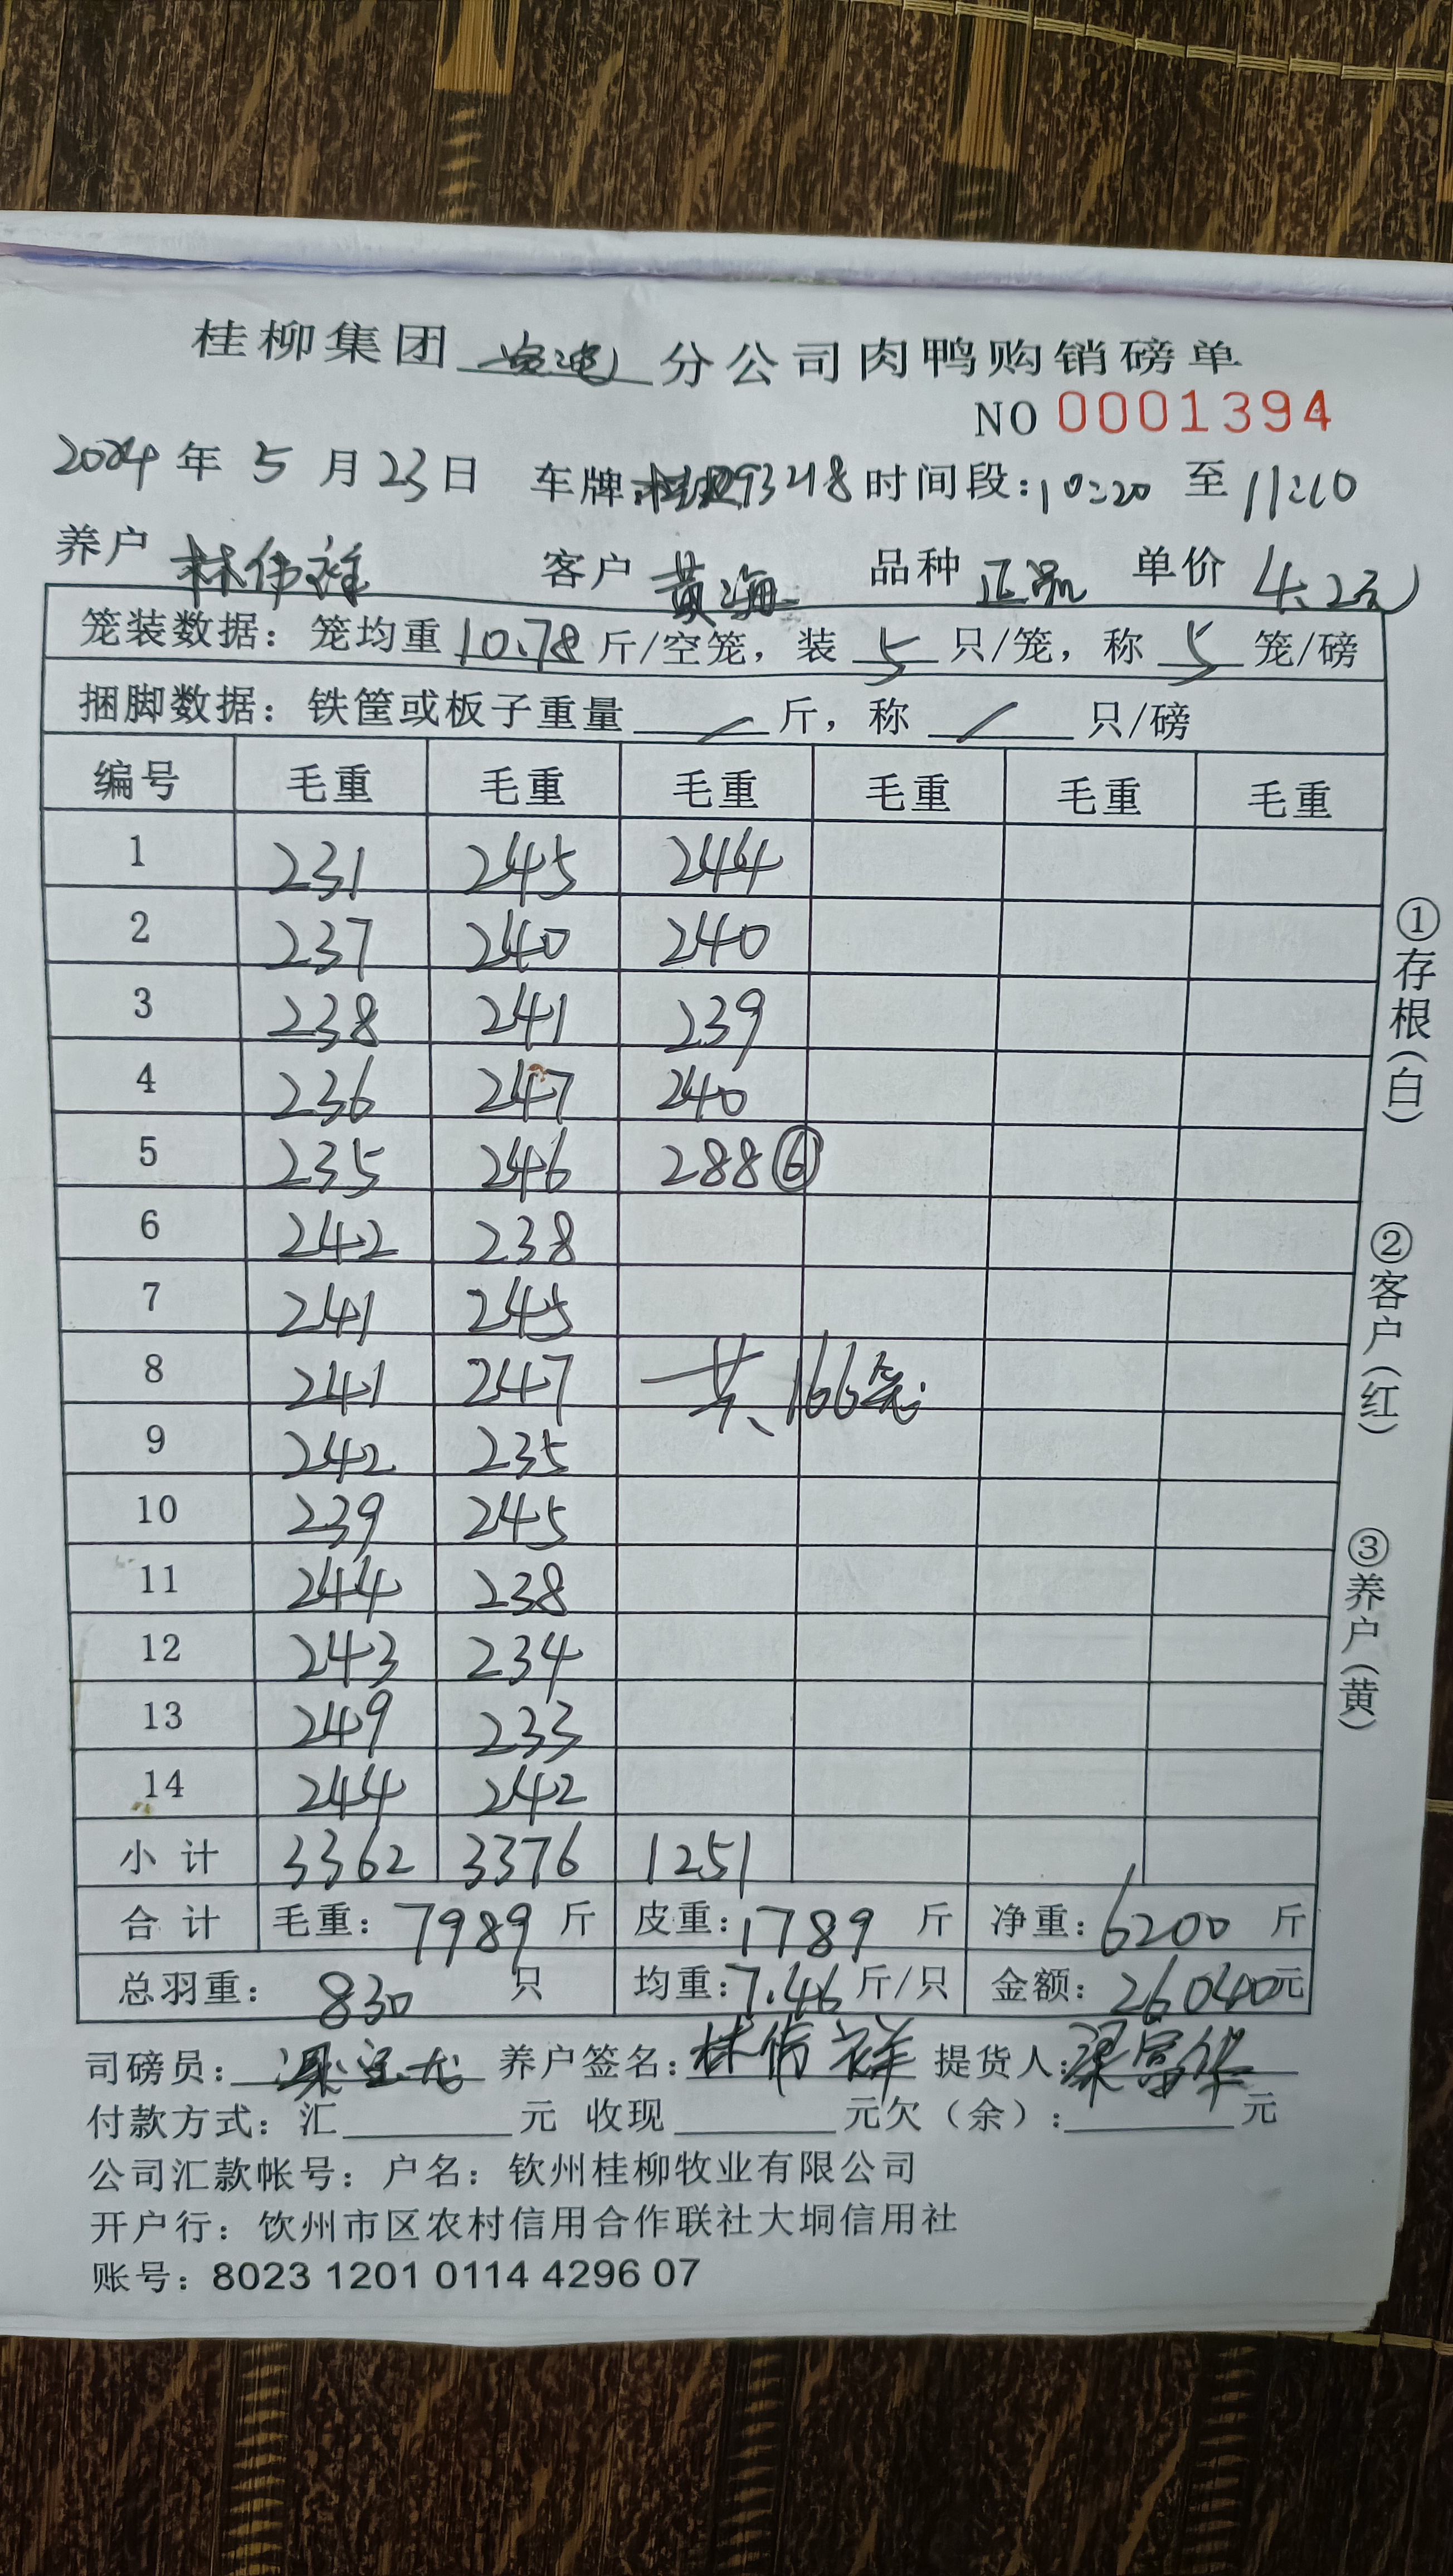 桂柳集团 分公司肉鸭购销磅单
NO 0001394
2024年5月23日 车牌: 93218 时间段:10:20 至 11:10
养户 林伟祥 客户 黄海 品种 正品 单价 4.2元
笼装数据: 笼均重 10.78 斤/空笼, 装 5 只/笼, 称 5 笼/磅
捆脚数据: 铁筐或板子重量 / 斤, 称 / 只/磅
编号 毛重 毛重 毛重 毛重 毛重 毛重
1 231 245 244
2 237 240 240
3 238 241 239
4 236 247 240
5 235 246 288⑥
6 242 238
7 241 245
8 241 247 共166笼
9 242 235
10 239 245
11 244 238
12 243 234
13 249 233
14 244 242
小计 3362 3376 1251
合计 毛重: 7989 斤 皮重: 1789 斤 净重: 6200 斤
总羽重: 830 只 均重: 7.46 斤/只 金额: 26040元
司磅员: 养户签名: 林伟祥 提货人: 梁富华
付款方式: 汇 元 收现 元欠(余): 元
公司汇款帐号: 户名: 钦州桂柳牧业有限公司
开户行: 钦州市区农村信用合作联社大垌信用社
账号: 8023 1201 0114 4296 07
①存根(白)
②客户(红)
③养户(黄)